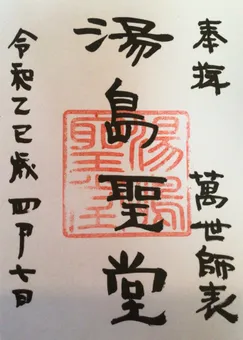 奉拝 萬世師表
湯島聖堂
令和乙巳歳四月七日
湯島聖堂